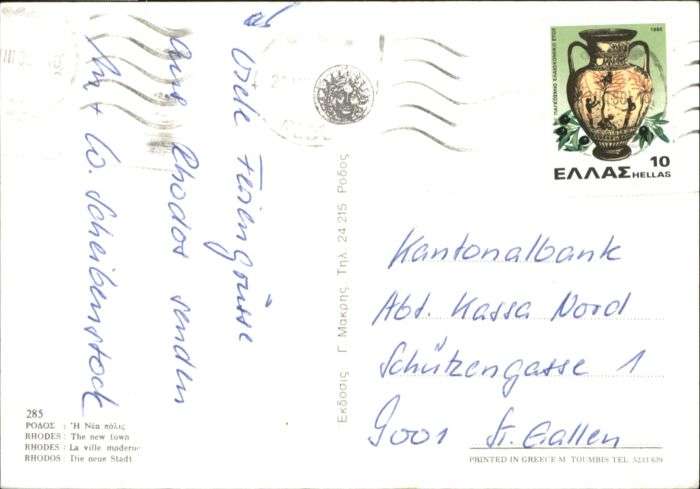 Viele Feriengrüsse
aus Rhodos senden
M. + W. Scheibenstock
285
ΡΟΔΟΣ : Ἡ Νέα πόλις
RHODES : The new town
RHODES : La ville moderne
RHODOS : Die neue Stadt
Εκδοσις Γ. Μακρης Τηλ. 24 215 Ροδος
ΠΑΓΚΟΣΜΙΟ ΕΛΑΙΟΚΟΜΙΚΟ ΕΤΟΣ
1980
10
ΕΛΛΑΣ HELLAS
Kantonalbank
Abt. Kassa Nord
Schützengasse 1
9001 St. Gallen
PRINTED IN GREECE M. TOUMBIS TEL. 3233 629